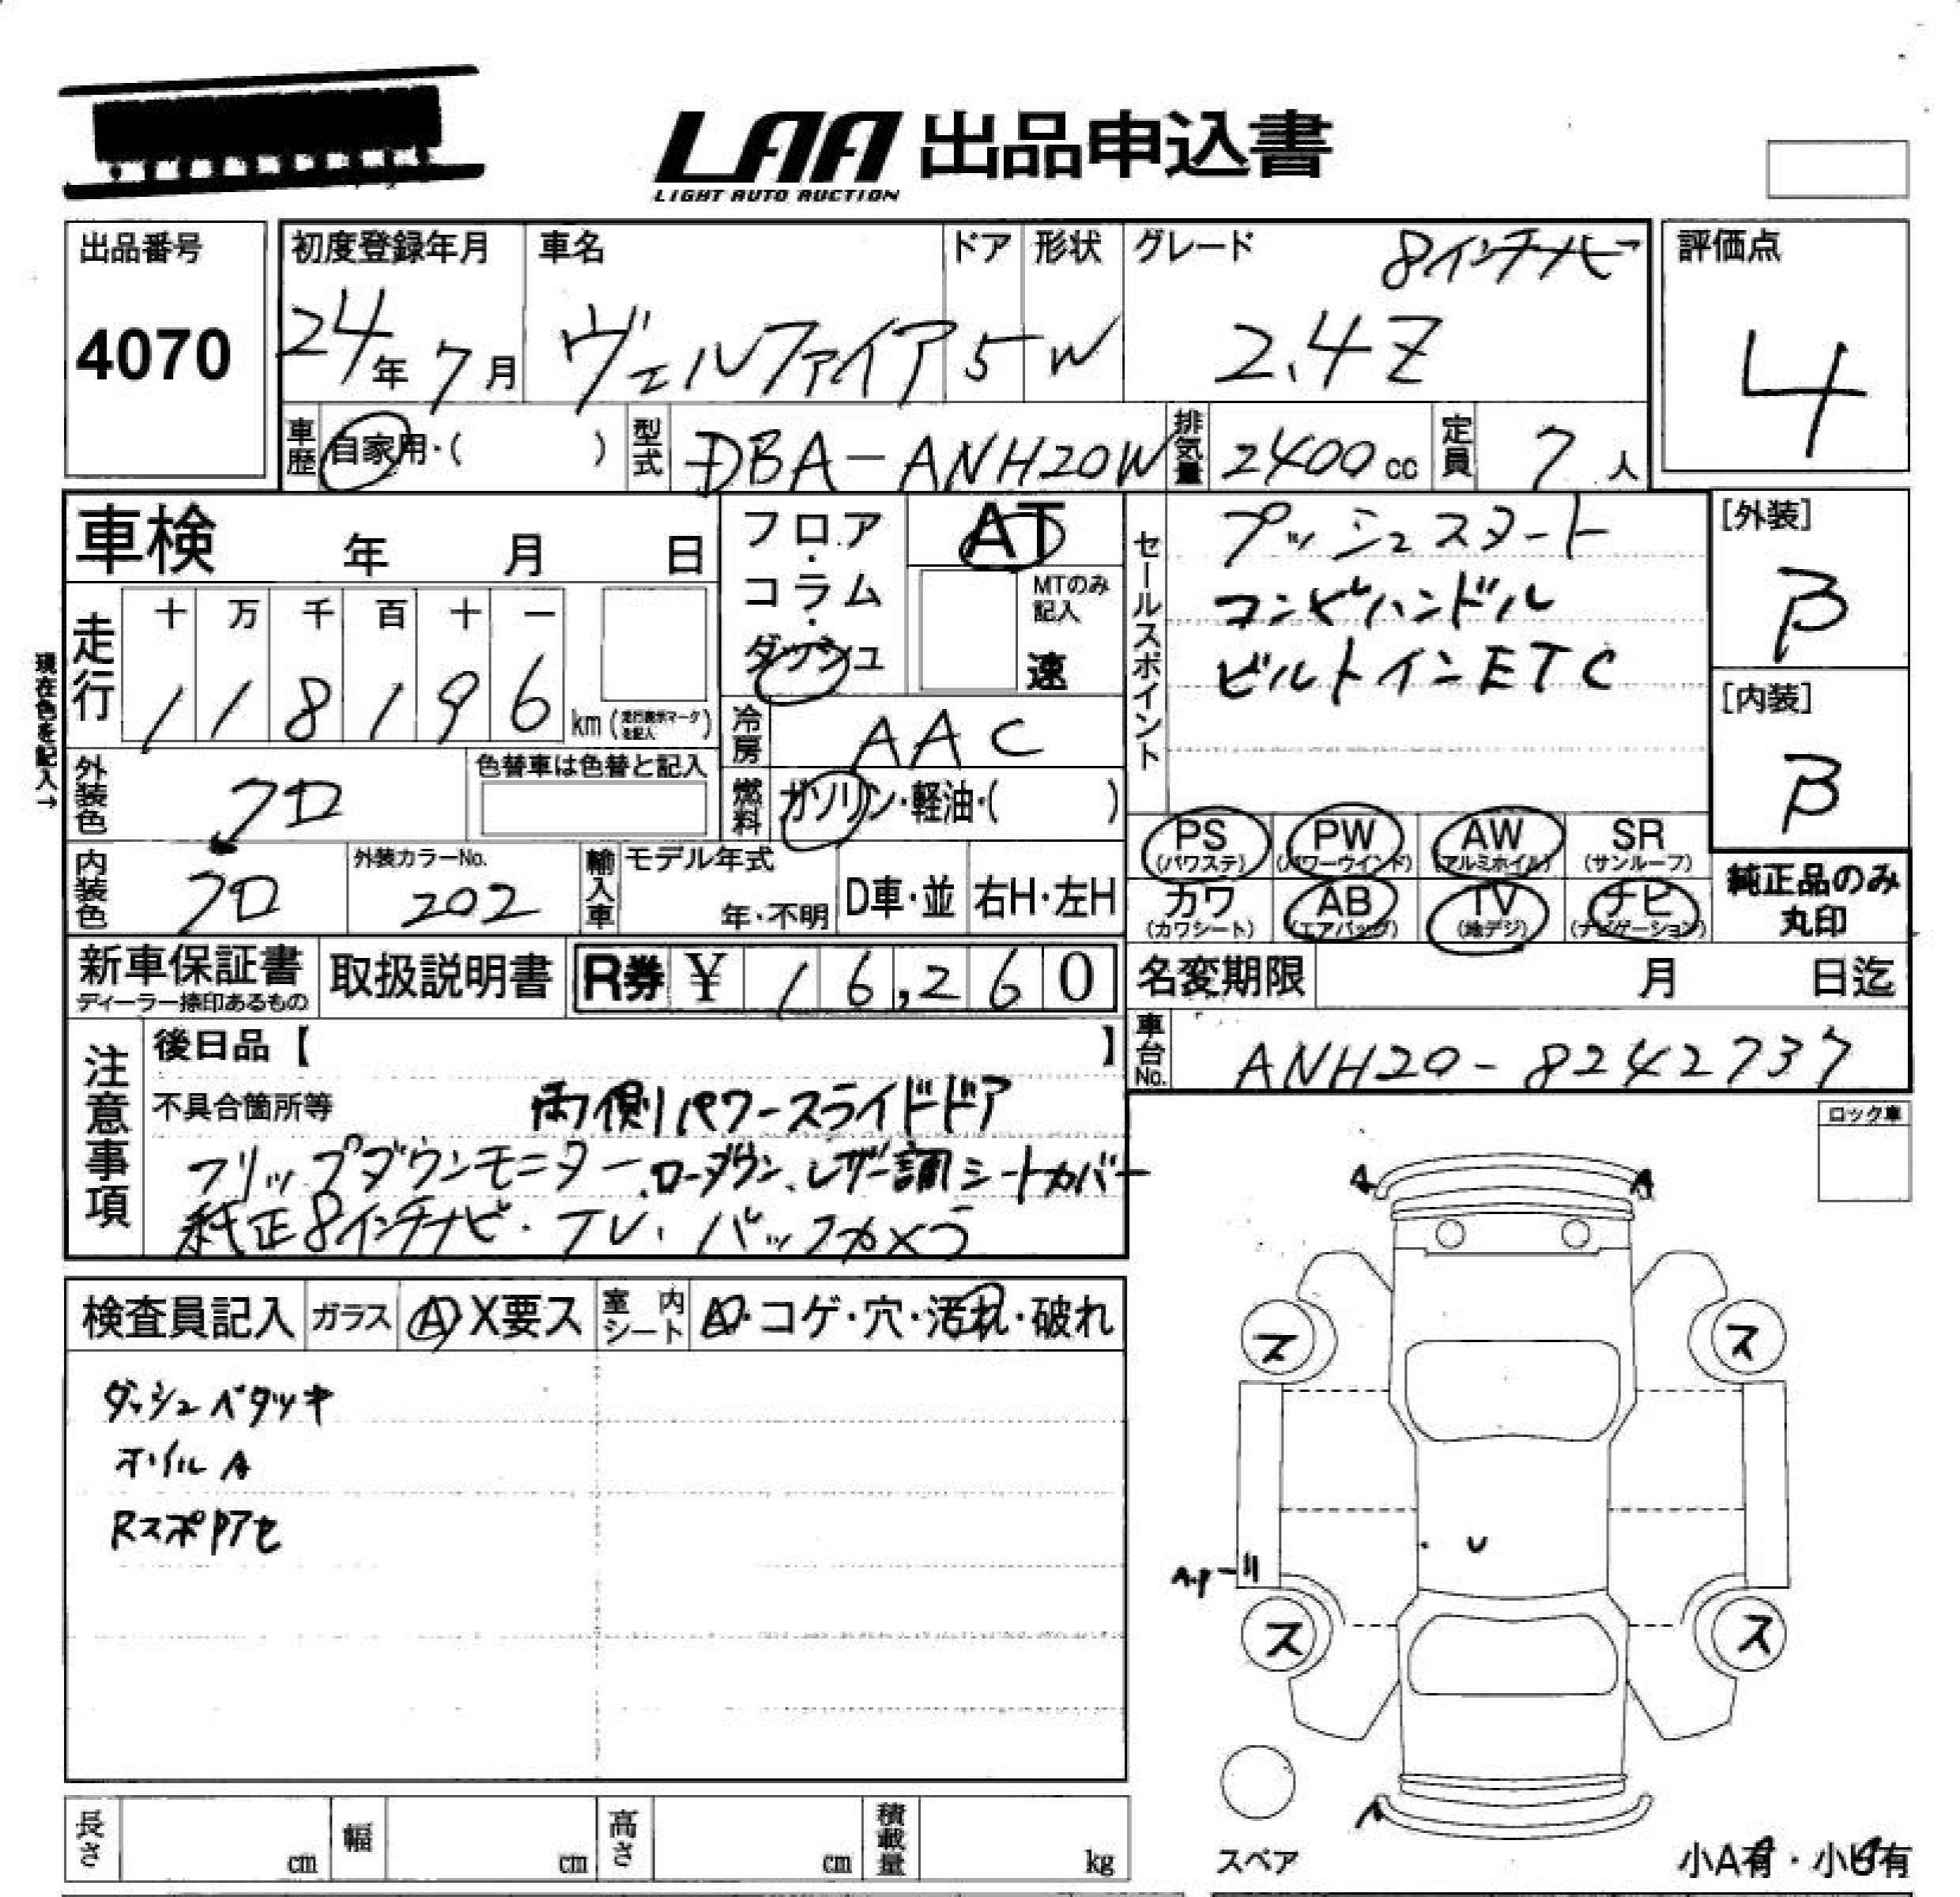 LAA 出品申込書
LIGHT AUTO AUCTION
出品番号
4070
初度登録年月
24年 7月
車名
ヴェルファイア
ドア
5
形状
W
グレード
8インチナビ
2.4Z
評価点
4
車歴
自家用・( )
型式
DBA-ANH20W
排気量
2400cc
定員
7人
車検 年 月 日
走行
十 万 千 百 十 一
1 1 8 1 9 6
km (走行表示マークを記入)
現在色を記入→
フロア・コラム・ダッシュ
AT
MTのみ記入
速
冷房
AAC
燃料
ガソリン・軽油・( )
セールスポイント
プッシュスタート
コンビハンドル
ビルトインETC
[外装]
B
[内装]
B
外装色
クロ
色替車は色替と記入
内装色
クロ
外装カラーNo.
202
輸入車
モデル年式
年・不明
D車・並
右H・左H
PS (パワステ)
PW (パワーウインド)
AW (アルミホイル)
SR (サンルーフ)
カワ (カワシート)
AB (エアバッグ)
TV (地デジ)
ナビ (ナビゲーション)
純正品のみ丸印
新車保証書
ディーラー捺印あるもの
取扱説明書
R券 ¥ 16,260
名変期限 月 日迄
車台No.
ANH20-8242737
注意事項
後日品【 】
不具合箇所等
両側パワースライドドア
フリップダウンモニター、ローダウン、レザー調シートカバー
純正8インチナビ・TV・バックカメラ
ロック車
検査員記入
ガラス
A X要ス
室内シート
A・コゲ・穴・汚れ・破れ
ダッシュベタツキ
ホイルA
RスポPアセ
A A
ス ス
U
A.P
ス ス
A
スペア
小A有・小B有
長さ cm
幅 cm
高さ cm
積載量 kg